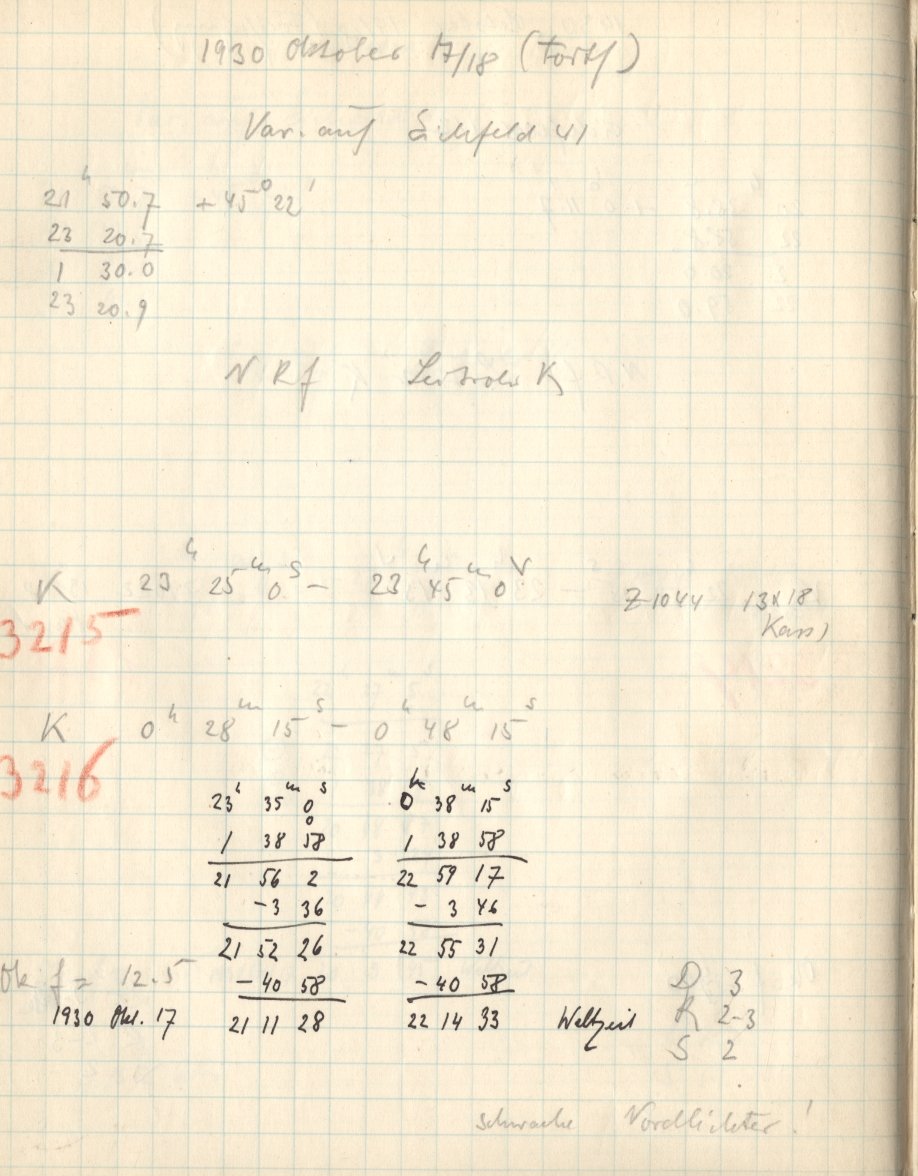 1930 Oktober 17/18 (Fortf)
Var. auf Eichfeld 41
21h 50.7 + 45° 22'
23 20.7
1 30.0
23 20.9
N R f K
K 23h 25m 0s - 23h 45m 0s Z 1044 13x18
3215 Kass)
K 0h 28m 15s - 0h 48m 15s
3216
23h 35m 0s 0h 38m 15s
1 38 58 1 38 58
21 56 2 22 59 17
-3 36 - 3 46
21 52 26 22 55 31
Ok f = 12.5 - 40 58 - 40 58 D 3
1930 Okt. 17 21 11 28 22 14 33 Weltzeit R 2-3
S 2
schwache Nordlichter!